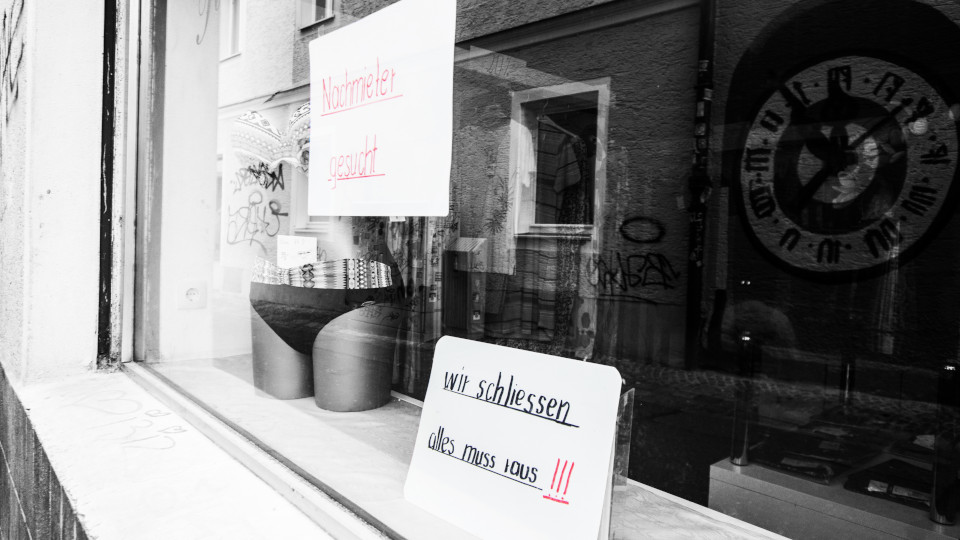 Nachmieter
gesucht
wir schliessen
alles muss raus !!!